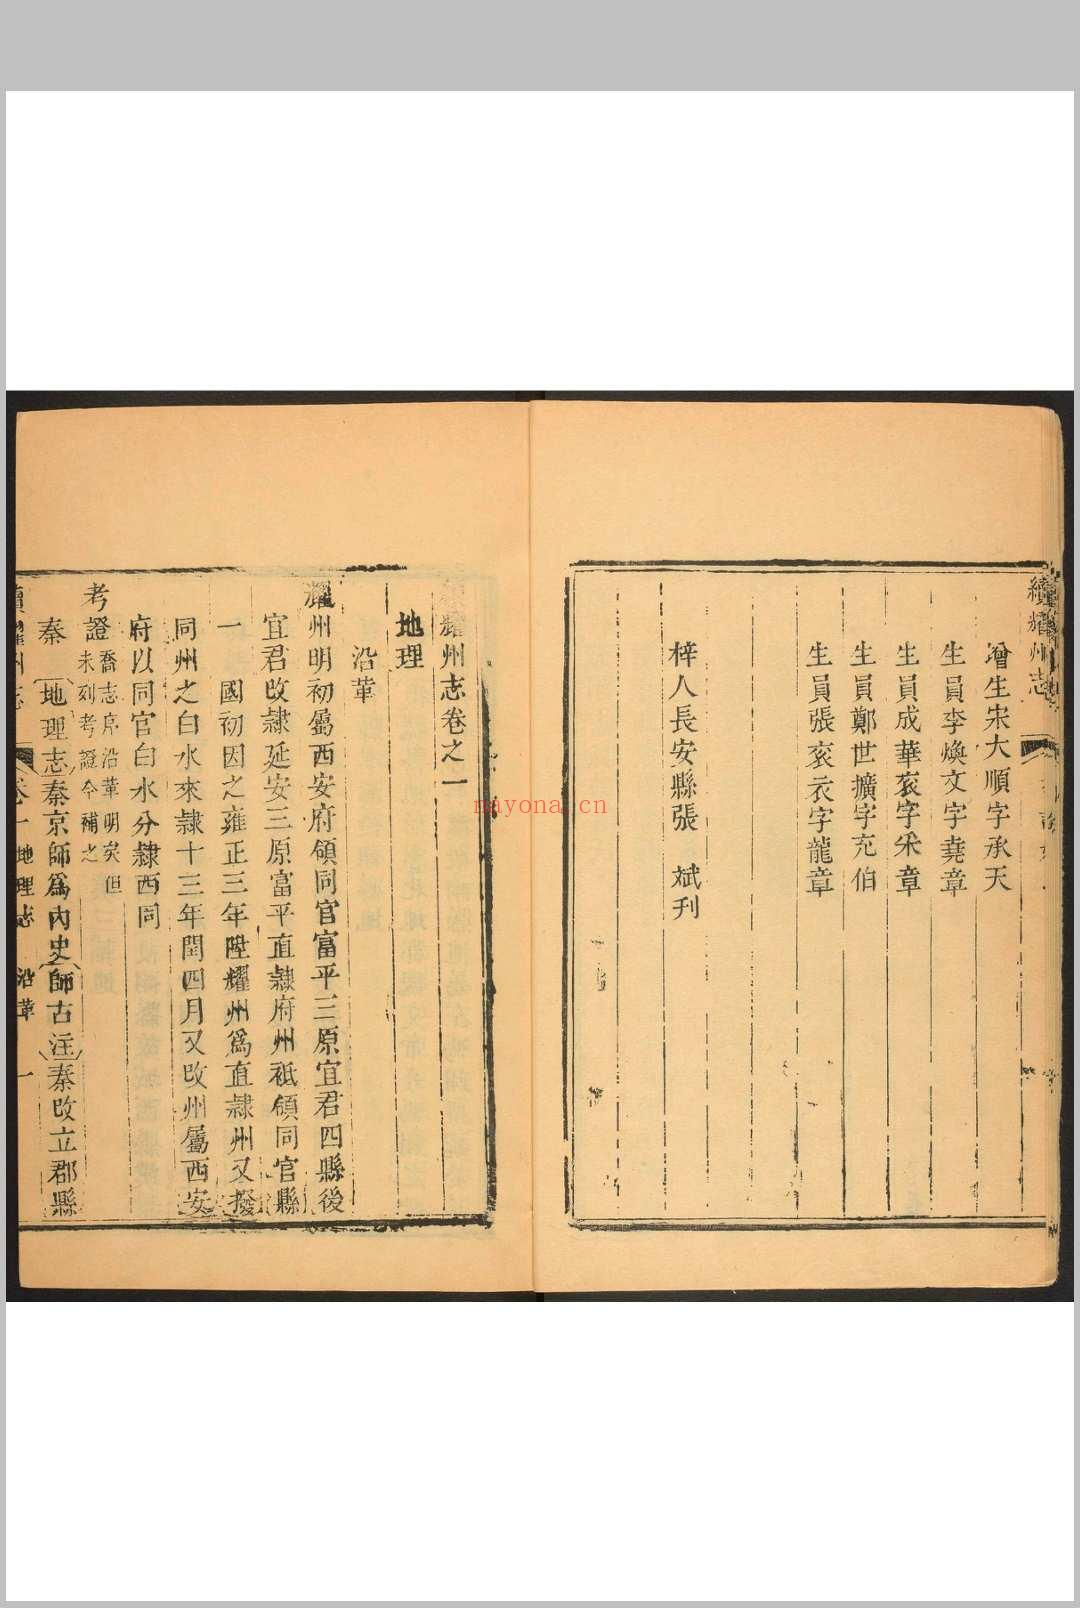 續耀州志
增生宋大順字承天
生員李煥文字堯章
生員成華袞字采章
生員鄭世擴字充伯
生員張袞衣字龍章
梓人長安縣張 斌刊
耀州志卷之一
地理
沿革
耀州明初屬西安府領同官富平三原宜君四縣後
宜君改隷延安三原富平直隷府州祗領同官縣
一 國初因之雍正三年陞耀州爲直隷州又撥
同州之白水來隷十三年閏四月又改州屬西安
府以同官白水分隷西同
考證喬志序沿革明矣但
未刻考證今補之
秦 地理志秦京師爲內史師古注秦改立郡縣
卷一 地理志 沿革 一
nayona.cn